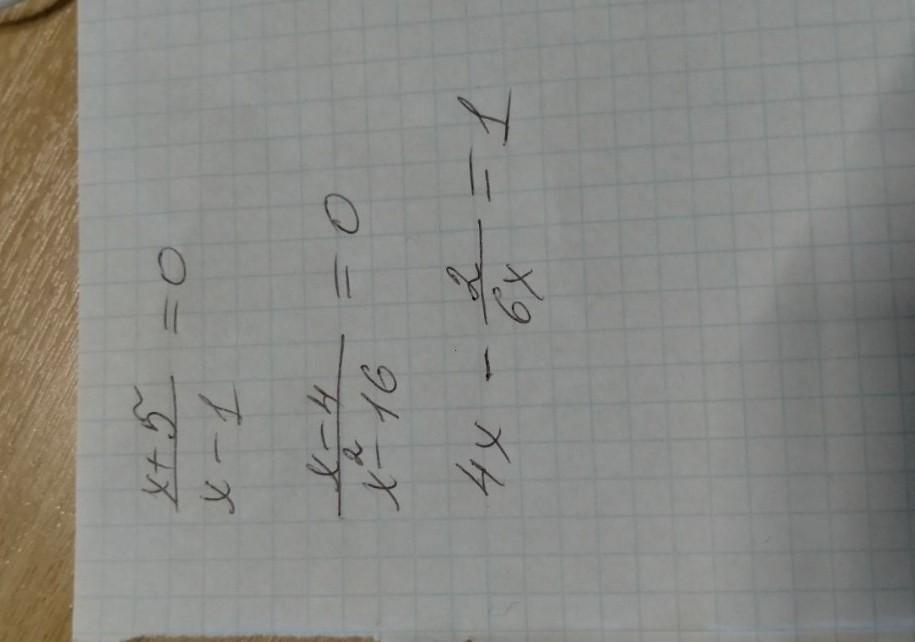 x+5/x-1 = 0
x-4/x²-16 = 0
4x - 2/6x = 1